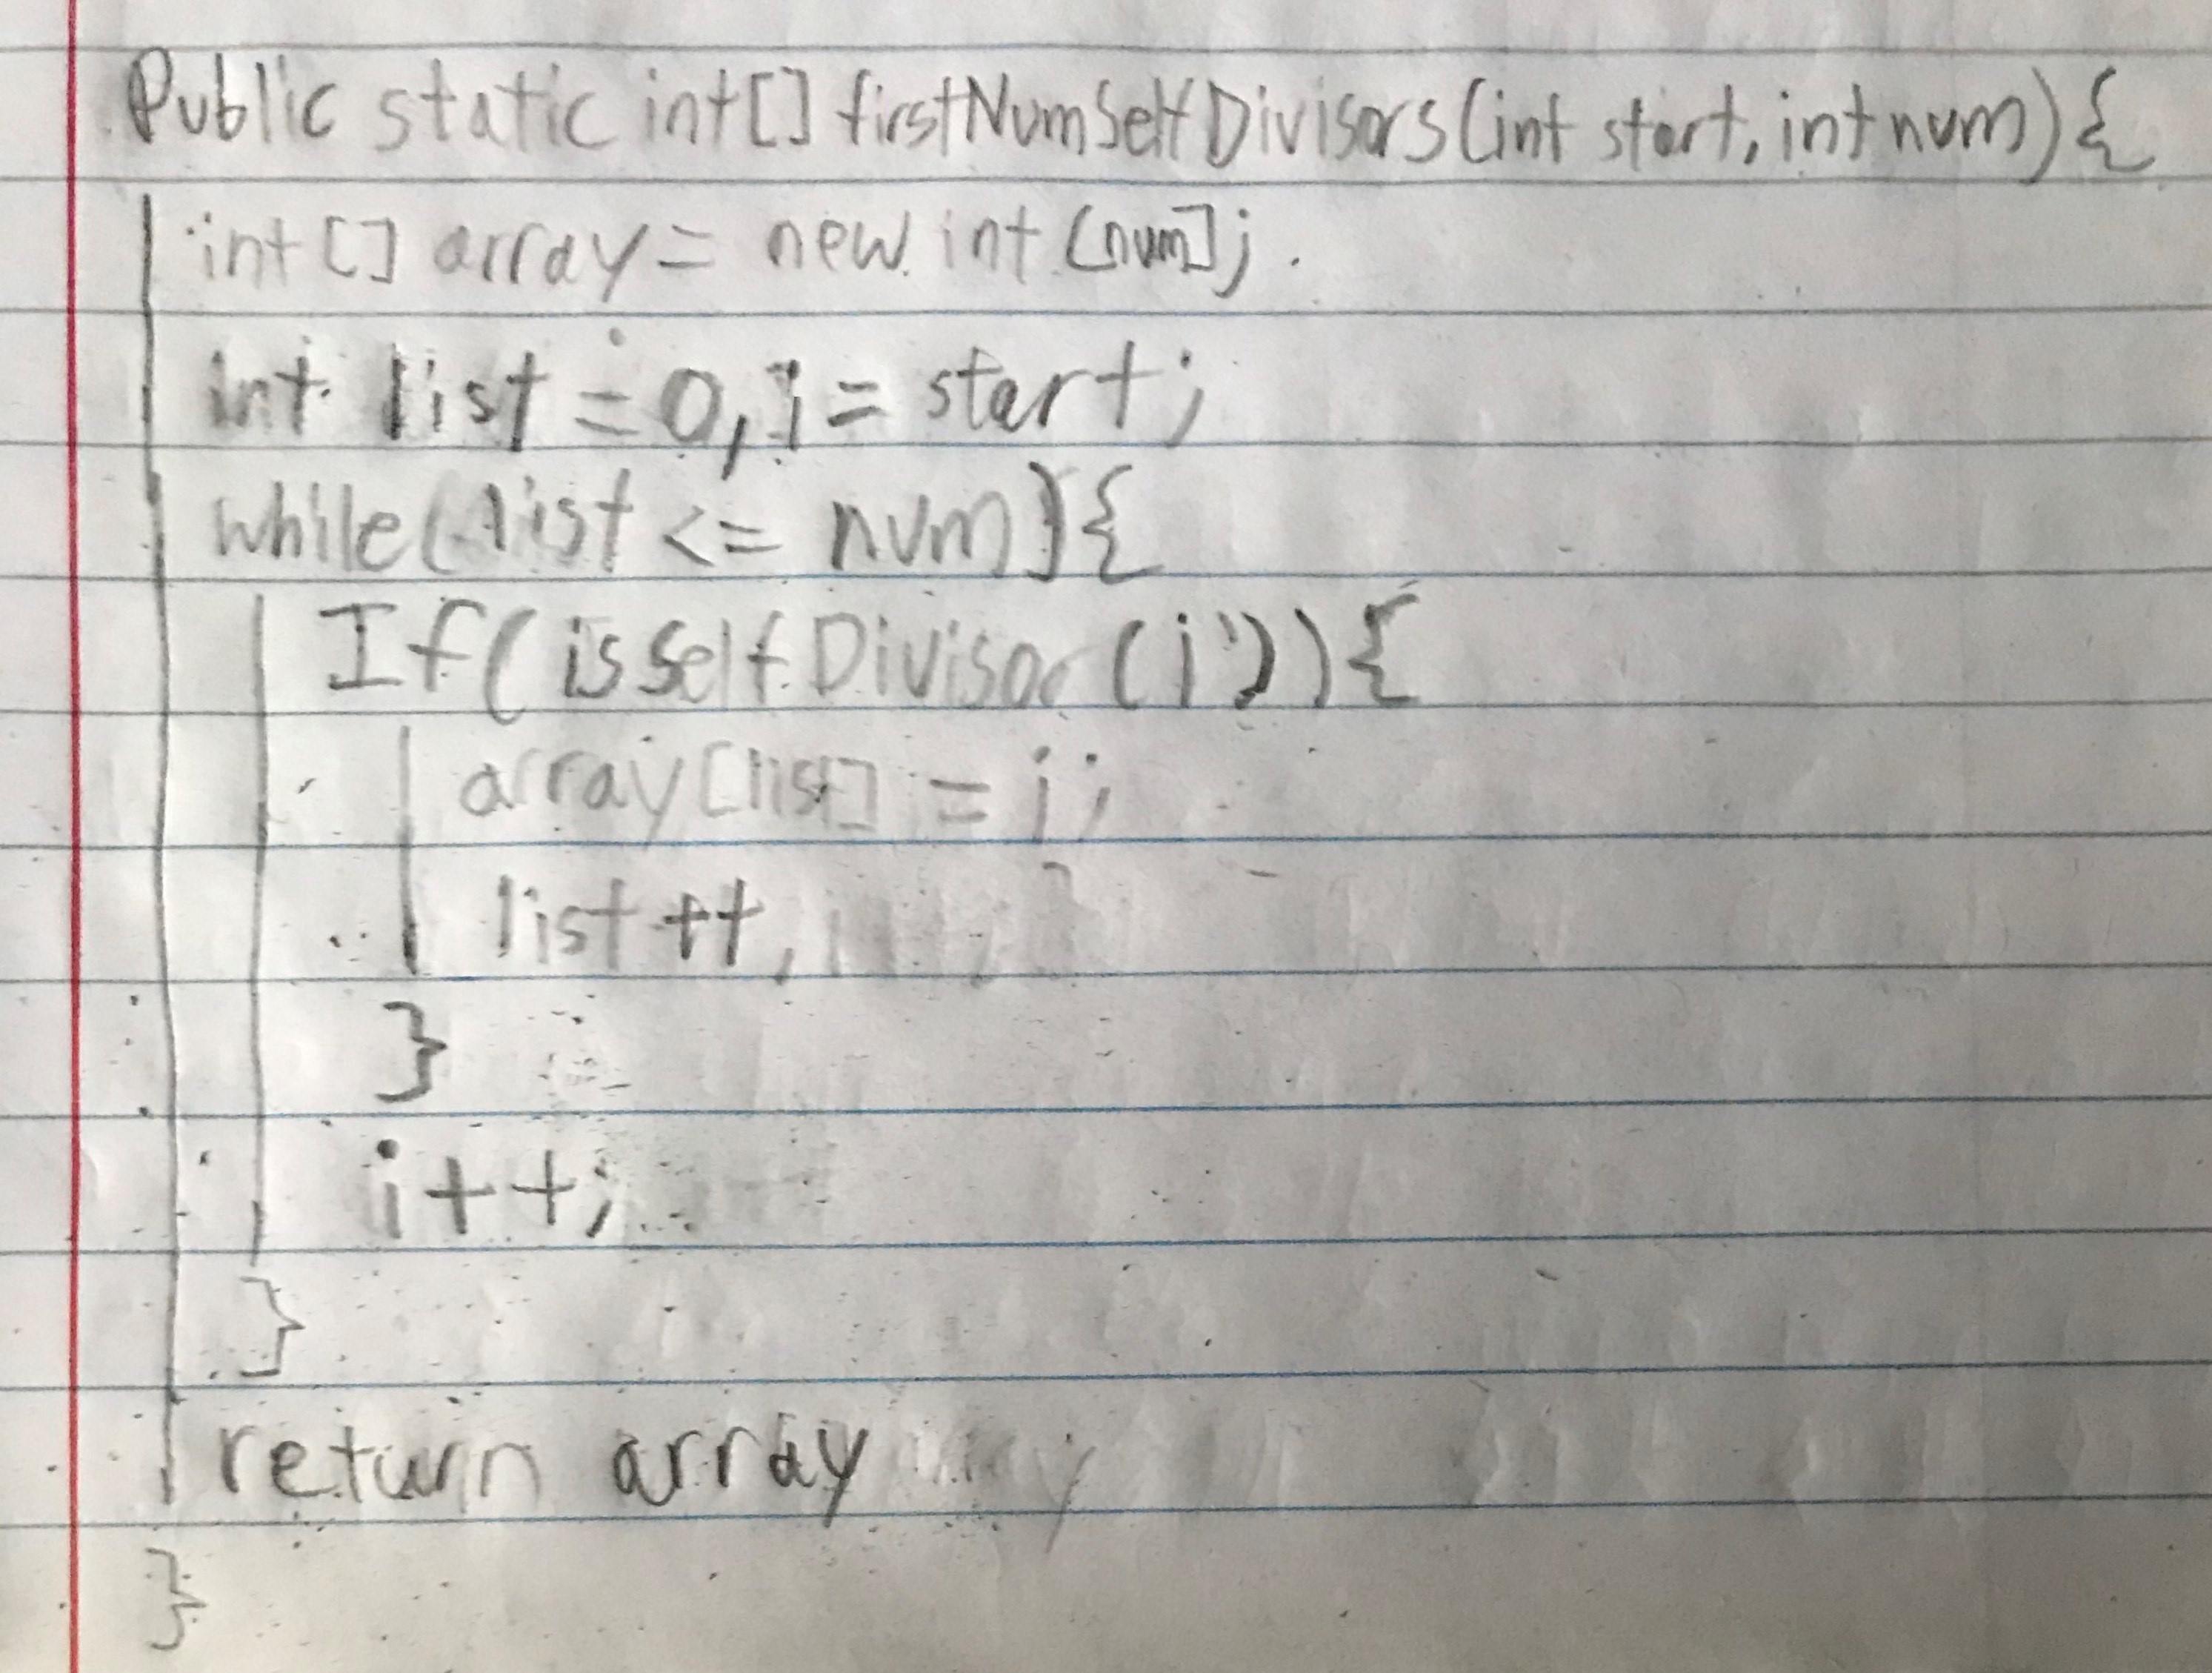 Public static int[] firstNumSelfDivisors(int start, int num){
int[] array = new int [num];
int list = 0, i = start;
while(list <= num){
If(isSelfDivisor(i)){
array[list] = i;
list ++,
}
i++;
}
return array
}